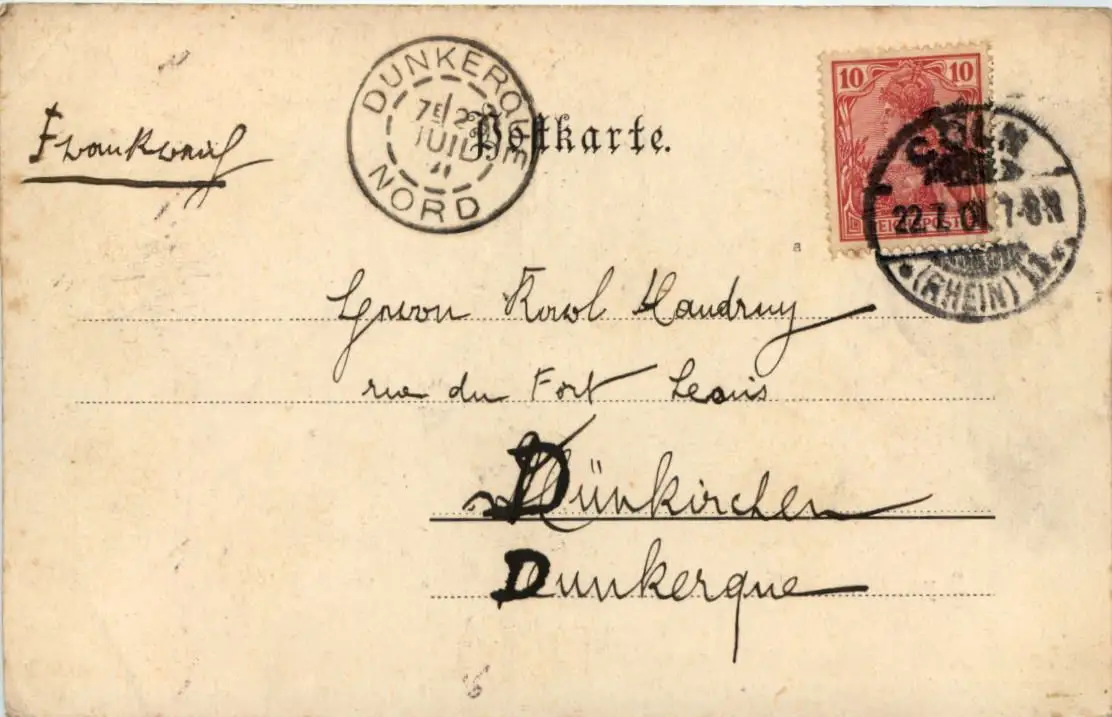 Frankreich
DUNKERQUE
7E
JUIL
NORD
Postkarte.
10 10
REICHSPOST
CÖLN
22.7.01
(RHEIN) 11
a
Karl Handruy
rue du Fort Louis
Dünkirchen
Dunkerque